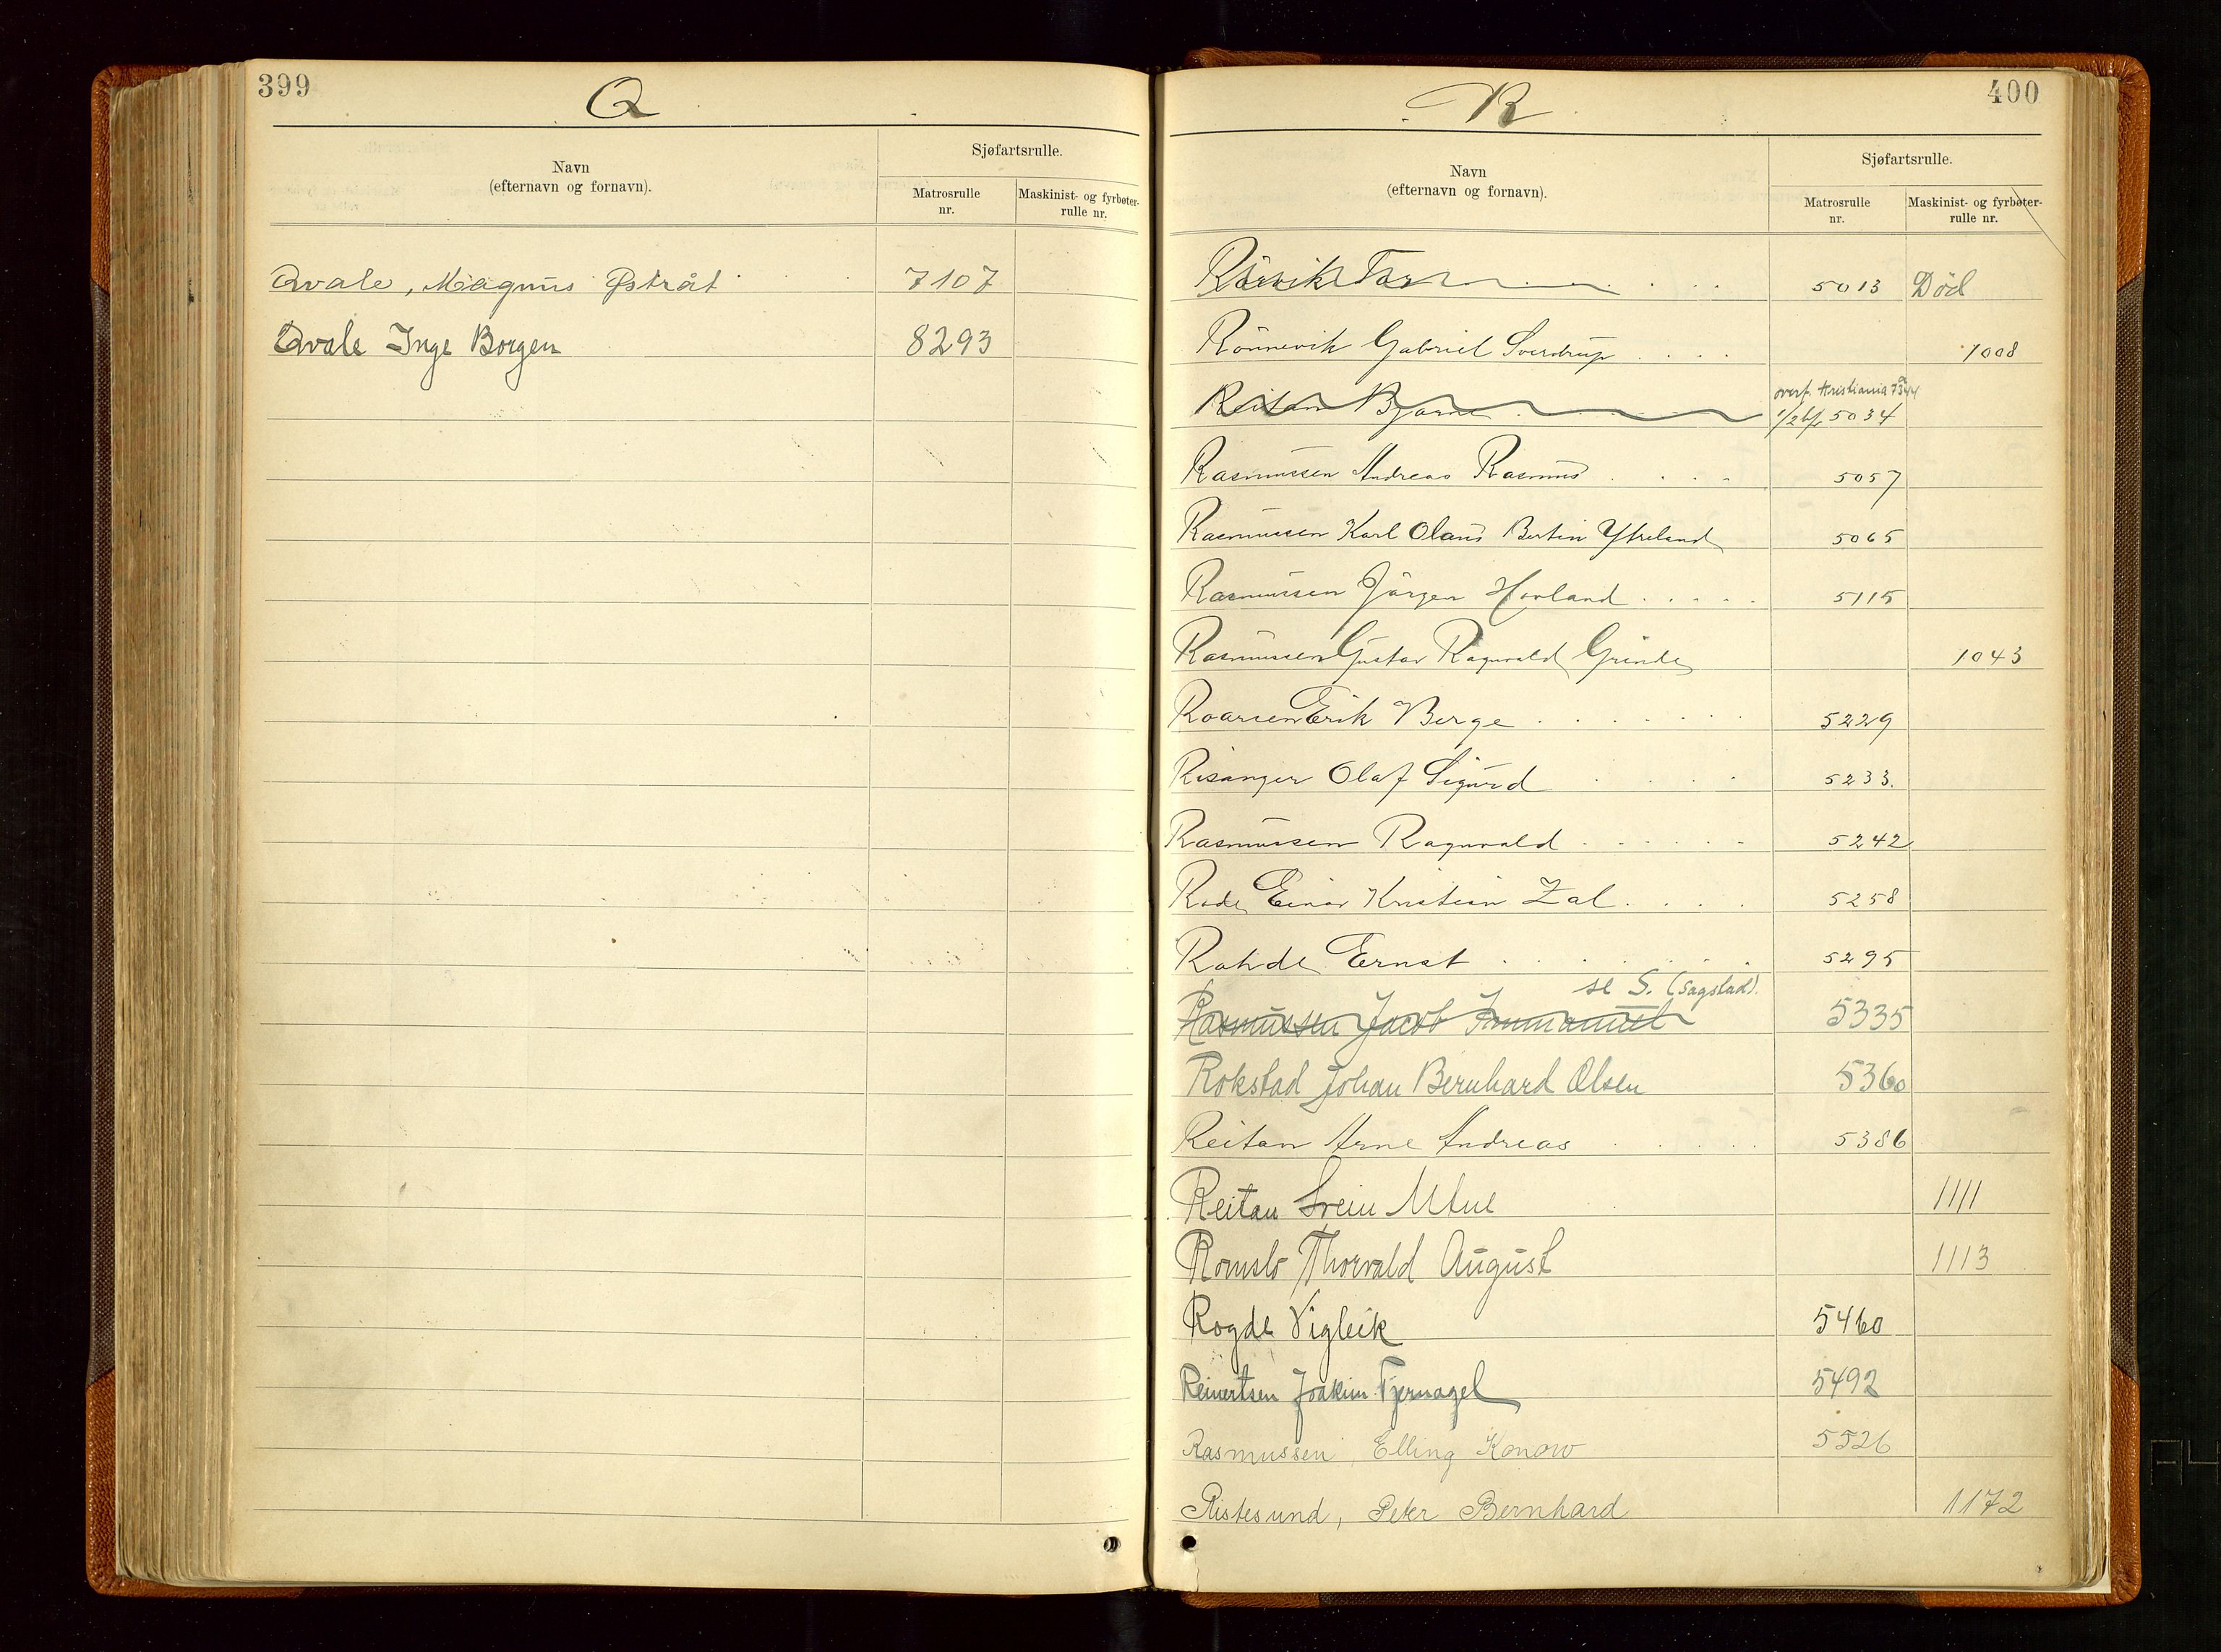 399
Q
Navn
(efternavn og fornavn).
Sjøfartsrulle.
Matrosrulle
nr.
Maskinist- og fyrbøter-
rulle nr.
Qvale, Magnus Østråt 7107
Qvale Inge Borgen 8293
400
R
Navn
(efternavn og fornavn).
Sjøfartsrulle.
Matrosrulle
nr.
Maskinist- og fyrbøter-
rulle nr.
Rörvik Tor 5013 Död
Rönnevik Gabriel Sverdrup 1008
overf. Kristiania
Reitan Bjarne 5034
Rasmussen Andreas Rasmus 5057
Rasmussen Karl Olaus Bertin Ytreland 5065
Rasmussen Jörgen Hovland 5115
Rasmussen Gustav Ragnvald Grinde 1043
Roarsen Erik Berge 5229
Risanger Olaf Sigurd 5233.
Rasmussen Ragnvald 5242
Rode Einar Kristian Zal 5258
Rohde Ernst 5295
se S. (Sagstad).
Rasmussen Jacob Immanuel 5335
Rokstad Johan Bernhard Olsen 5360
Reitan Arne Andreas 5386
Reitan Svein 1111
Romslo Thorvald August 1113
Rogde Vigleik 5460
Reinertsen Joakim Tjernagel 5492
Rasmussen, Elling Konow 5526
Ristesund, Peter Bernhard 1172